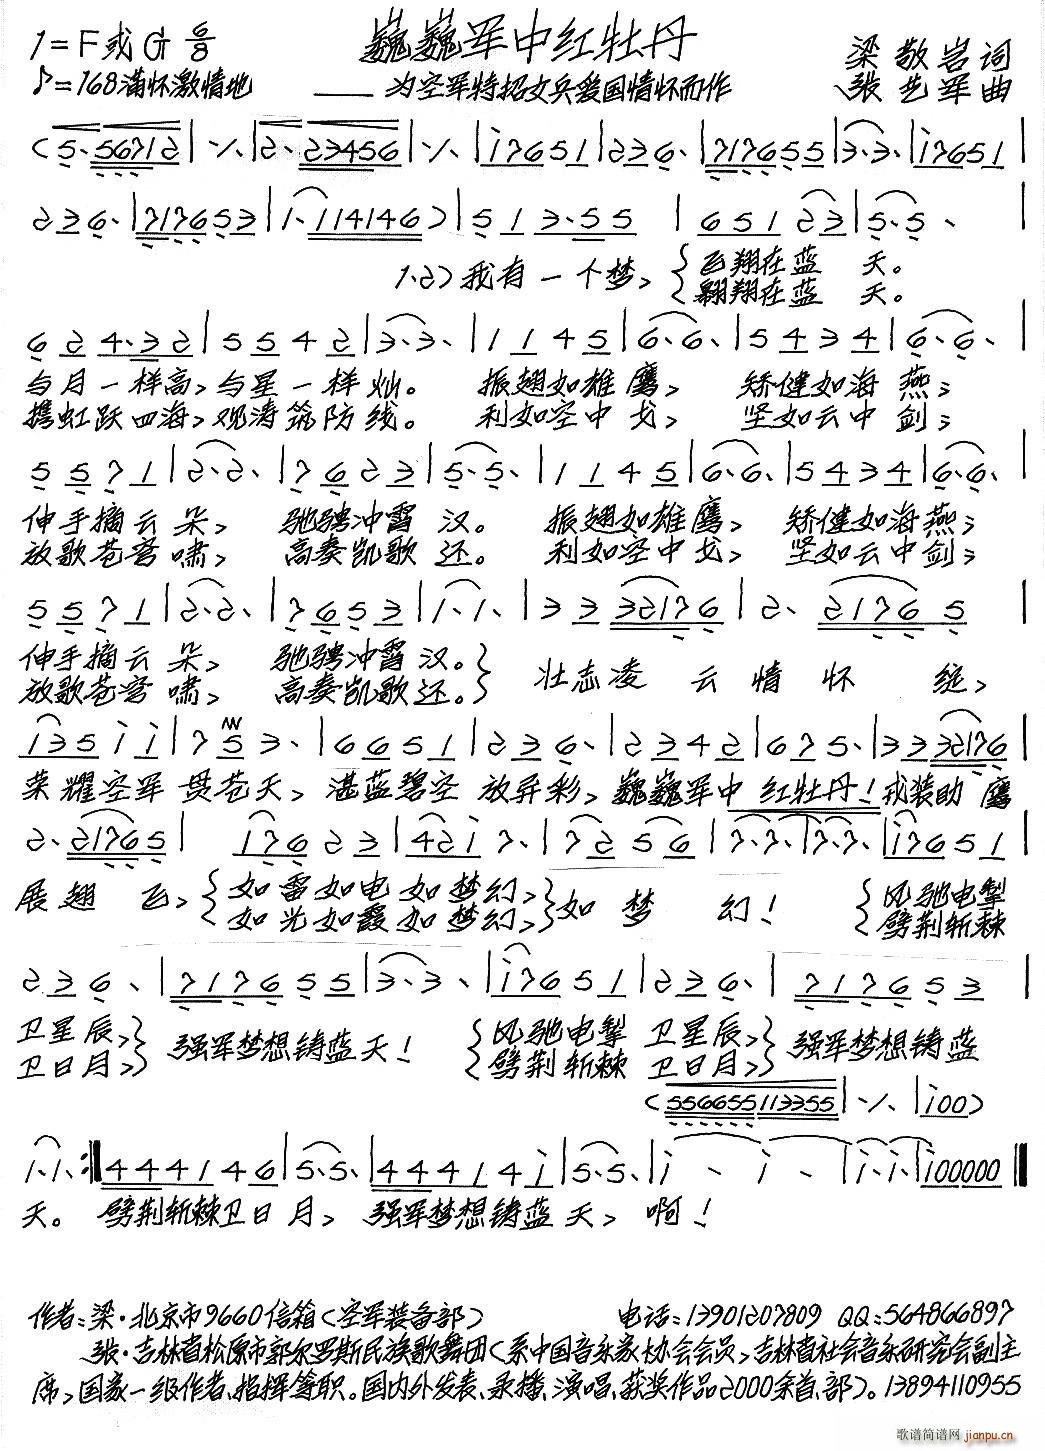 1=F或G 6/8
巍巍军中红牡丹
梁敬岩词
♪=168满怀激情地
——为空军特招文兵爱国情怀而作
张艺军曲
1.2)我有一个梦, 飞翔在蓝天。
翱翔在蓝天。
与月一样高,与星一样灿。 振翅如雄鹰, 矫健如海燕;
携虹跃四海,观涛筑防线。 利如空中戈, 坚如云中剑;
伸手摘云朵, 驰骋冲霄汉。 振翅如雄鹰, 矫健如海燕;
放歌苍穹啸, 高奏凯歌还。 利如空中戈, 坚如云中剑;
伸手摘云朵, 驰骋冲霄汉。 壮志凌云情怀绽,
放歌苍穹啸, 高奏凯歌还。
荣耀空军贯苍天, 湛蓝碧空放异彩, 巍巍军中红牡丹! 戎装助鹰
展翅飞, 如雷如电如梦幻, 如梦幻! 风驰电掣
如光如霞如梦幻, 劈荆斩棘
卫星辰, 强军梦想铸蓝天! 风驰电掣卫星辰, 强军梦想铸蓝
卫日月, 劈荆斩棘卫日月,
天。 劈荆斩棘卫日月, 强军梦想铸蓝天, 啊!
作者:梁·北京市9660信箱(空军装备部) 电话:13901207809 QQ:564866897
张·吉林省松原市郭尔罗斯民族歌舞团(系中国音乐家协会会员,吉林省社会音乐研究会副主
席,国家一级作者、指挥兼职。国内外发表、录播、演唱、获奖作品2000余首、部)。13894110955
歌谱简谱网 jianpu.cn